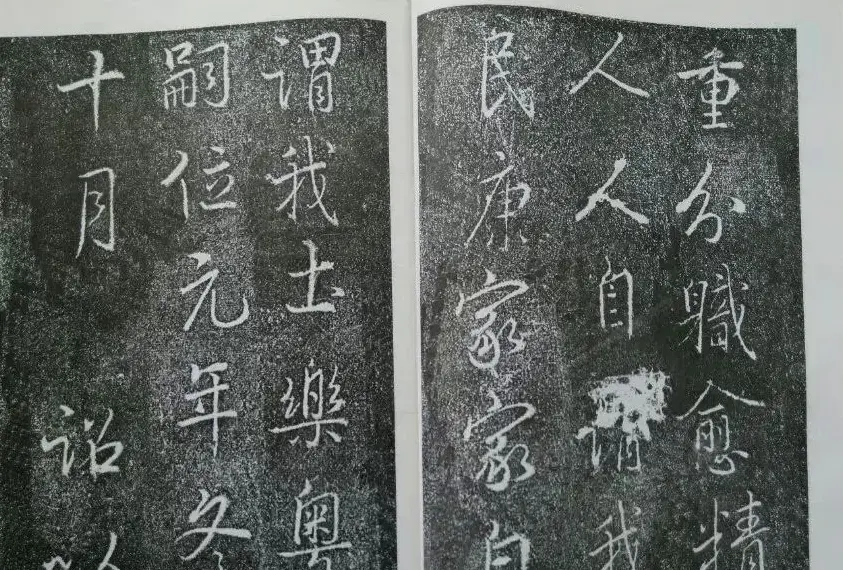 重分職愈精
人人自謂我
民康家家自
謂我土樂粵
嗣位元年冬
十月詔